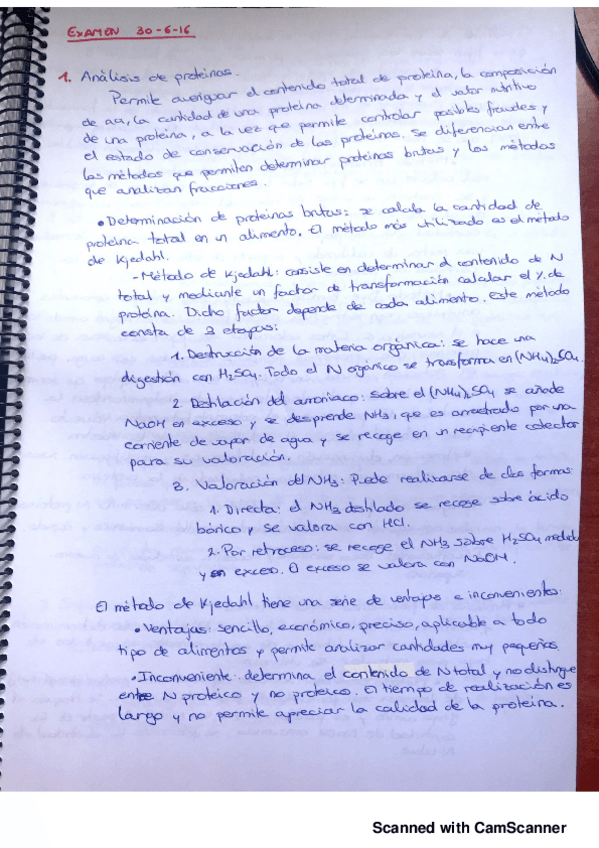 EXAMEN 30-6-16
1. Análisis de proteínas.
Permite averiguar el contenido total de proteína, la composición
de aa, la cantidad de una proteína determinada y el valor nutritivo
de una proteína, a la vez que permite controlar posibles fraudes y
el estado de conservación de las proteínas. Se diferencian entre
los métodos que permiten determinar proteínas brutas y los métodos
que analizan fracciones.
• Determinación de proteínas brutas: se calcula la cantidad de
proteína total en un alimento. El método más utilizado es el método
de Kjedahl.
- Método de Kjedahl: consiste en determinar el contenido de N
total y mediante un factor de transformación calcular el % de
proteína. Dicho factor depende de cada alimento. Este método
consta de 3 etapas:
1. Destrucción de la materia orgánica: se hace una
digestión con H₂SO₄. Todo el N orgánico se transforma en (NH₄)₂SO₄.
2. Destilación del amoniaco: sobre el (NH₄)₂SO₄ se añade
NaOH en exceso y se desprende NH₃, que es arrastrado por una
corriente de vapor de agua y se recoge en un recipiente colector
para su valoración.
3. Valoración del NH₃: Puede realizarse de dos formas:
1. Directa: el NH₃ destilado se recoge sobre ácido
bórico y se valora con HCl.
2. Por retroceso: se recoge el NH₃ sobre H₂SO₄ medido
y en exceso. El exceso se valora con NaOH.
El método de Kjedahl tiene una serie de ventajas e inconvenientes:
• Ventajas: sencillo, económico, preciso, aplicable a todo
tipo de alimentos y permite analizar cantidades muy pequeñas.
• Inconveniente: determina el contenido de N total y no distingue
entre N proteico y no proteico. El tiempo de realización es
largo y no permite apreciar la calidad de la proteína.
Scanned with CamScanner